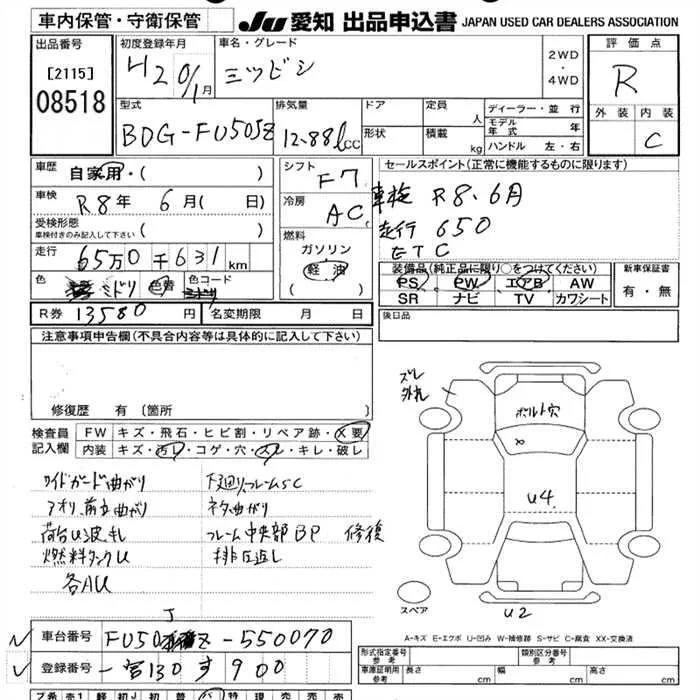 車内保管・守衛保管
JU 愛知 出品申込書 JAPAN USED CAR DEALERS ASSOCIATION
出品番号
[2115]
08518
初度登録年月
H20年1月
車名・グレード
ミツビシ
2WD
・
4WD
評価点
R
外装 内装
C
型式
BDG-FU50JZ
排気量
12.88l CC
ドア
形状
定員 人
積載 kg
ディーラー・並行
モデル年式 年
ハンドル 左・右
車歴
自家用・( )
車検
R8年 6月( 日)
受検形態
車検付きのみ記入して下さい ( )
走行
65万0千631 km
色
ミドリ
色替
色コード
シフト
F7
冷房
AC
燃料
ガソリン
軽油
セールスポイント(正常に機能するものに限ります)
車検 R8.6月
走行 650
ETC
装備品(純正品に限り○をつけてください)
PS PW エアB AW
SR ナビ TV カワシート
新車保証書
有・無
R券 13580円
名変期限 月 日
後日品
注意事項申告欄(不具合内容等は具体的に記入して下さい)
修復歴 有 [箇所
検査員記入欄
FW キズ・飛石・ヒビ割・リペア跡・X要
内装 キズ・汚レ・コゲ・穴・スレ・キレ・破レ
ワイドガード曲がり
アオリ、前立曲がり
荷台U波、キレ
燃料タンクU
各AU
下廻り、フレームSC
ネタ曲がり
フレーム中央部BP 修復
排圧返し
ズレ
外れ
ボルト穴
U4
U2
スペア
A-キズ E-エクボ U-凹み W-補修跡 S-サビ C-腐食 XX-交換済
車台番号
J
FU50 Z-550070
登録番号
一宮130す900
形式指定番号
参考
類別区分番号
参考
車庫証明用
参考
長さ cm
幅 cm
高さ cm